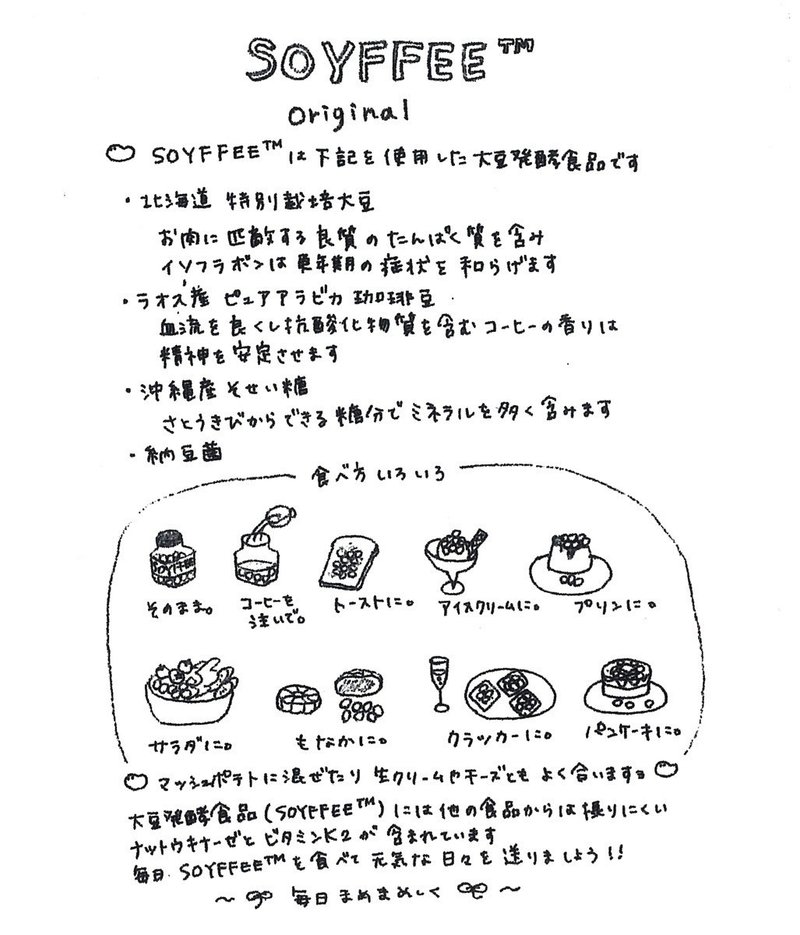 SOYFFEE™
original
SOYFFEE™は下記を使用した大豆発酵食品です
・北海道 特別栽培大豆
お肉に匹敵する良質のたんぱく質を含み
イソフラボンは更年期の症状を和らげます
・ラオス産 ピュアアラビカ珈琲豆
血流を良くし抗酸化物質を含むコーヒーの香りは
精神を安定させます
・沖縄産 そせい糖
さとうきびからできる糖分でミネラルを多く含みます
・納豆菌
食べ方いろいろ
SOYFFEE
そのまま。
コーヒーを
注いで。
トーストに。
アイスクリームに。
プリンに。
サラダに。
もなかに。
クラッカーに。
パンケーキに。
マッシュポテトに混ぜたり 生クリームやチーズともよく合います。
大豆発酵食品(SOYFFEE™)には他の食品からは摂りにくい
ナットウキナーゼとビタミンK2が含まれています
毎日SOYFFEE™を食べて元気な日々を送りましょう!!
〜 毎日まめまめしく 〜